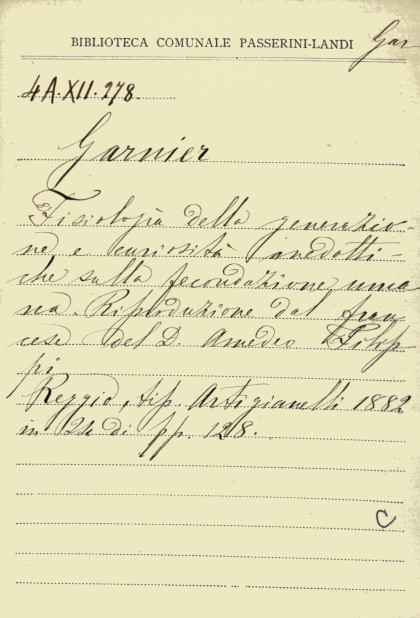 BIBLIOTECA COMUNALE PASSERINI-LANDI Gar
4A.XII.278.
Garnier
Fisiologia della generazio-
ne e curiosità anedotti-
che sulla fecondazione uma
na. Riproduzione dal fran
cese del D. Amedeo Filip
pi
Reggio, tip. Artigianelli 1882
in 24 di pp. 128.
C